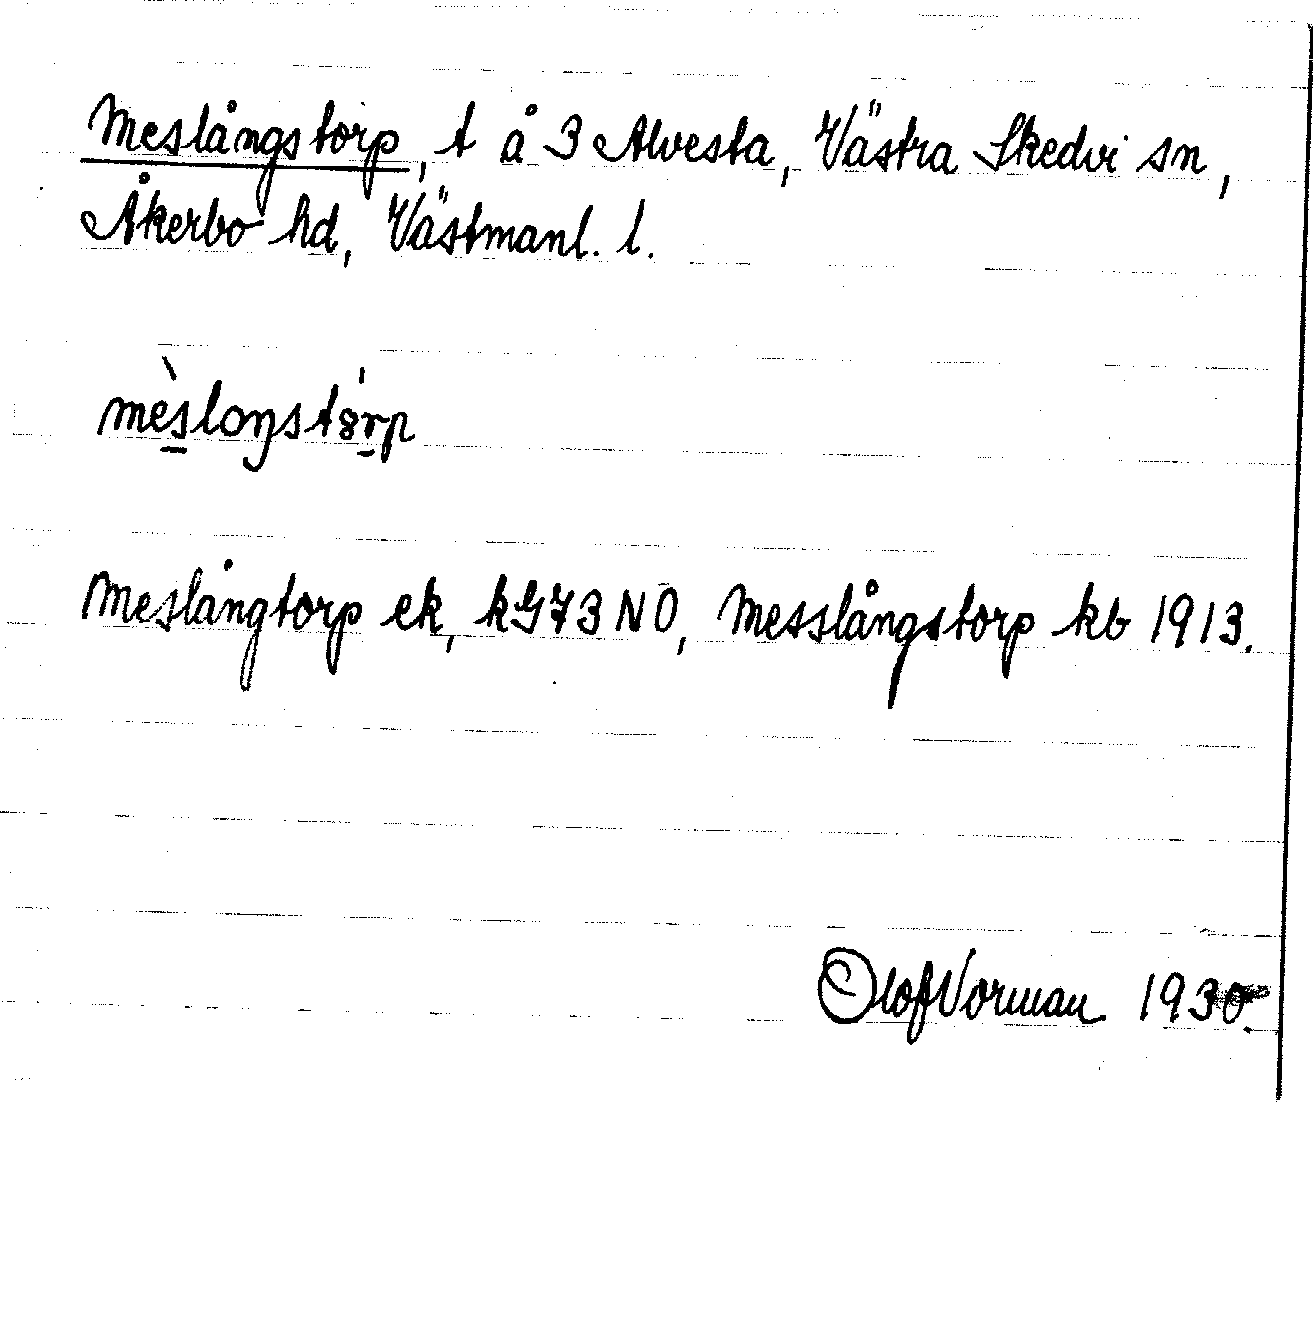 Meslångstorp, t å 3 Alvesta, Västra Skedvi sn,
Åkerbo hd, Västmanl. l.
mès̲loŋstȣ́r̲p
Meslångtorp ek, kG73NO, Messlångstorp kb 1913.
Olof Vorman 1930.